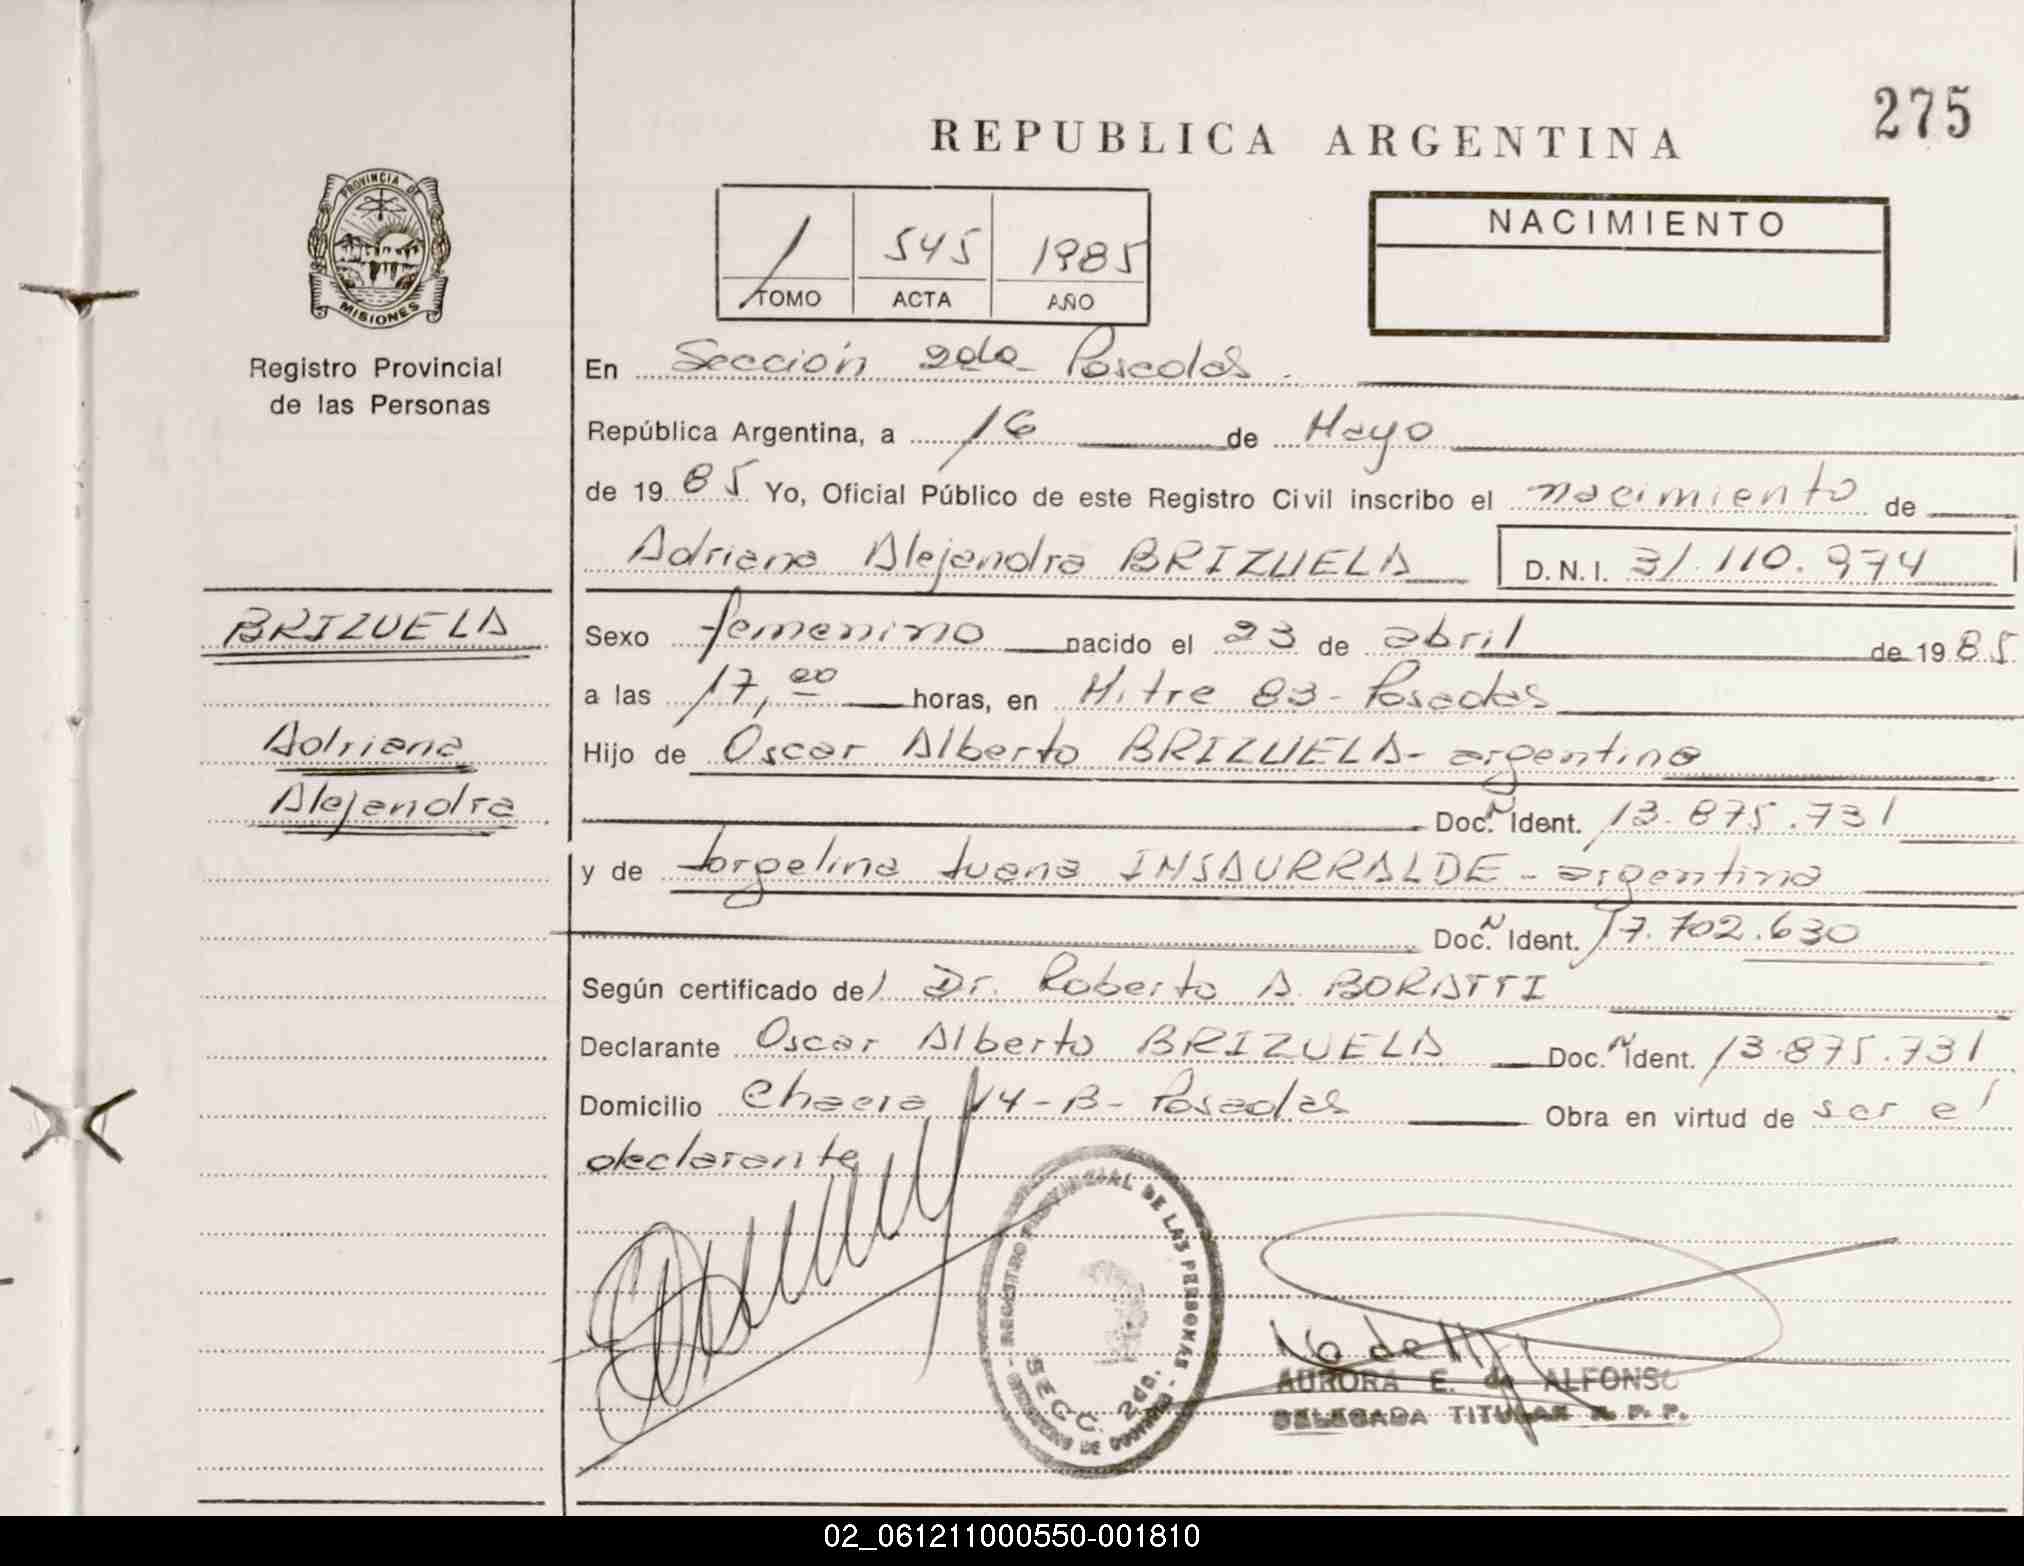 275
REPUBLICA ARGENTINA
PROVINCIA DE
MISIONES
Registro Provincial
de las Personas
1 545 1985
TOMO ACTA AÑO
NACIMIENTO
En Sección 2da Posadas
República Argentina, a 16 de Mayo
de 1985 Yo, Oficial Público de este Registro Civil inscribo el nacimiento de
Adriana Alejandra BRIZUELA D.N.I. 31.110.974
BRIZUELA
Adriana
Alejandra
Sexo femenino nacido el 23 de abril de 1985
a las 17,00 horas, en Mitre 83 - Posadas
Hijo de Oscar Alberto BRIZUELA - argentino
Doc. N Ident. 13.875.731
y de Jorgelina Juana INSAURRALDE - argentina
Doc. N Ident. 17.702.630
Según certificado de) Dr. Roberto A. BORATTI
Declarante Oscar Alberto BRIZUELA Doc. N Ident. 13.875.731
Domicilio Chacra 14-B- Posadas Obra en virtud de ser el
declarante
REGISTRO PROVINCIAL DE LAS PERSONAS
SECC. 2da.
AURORA E. de ALFONSO
DELEGADA TITULAR R. P. P.
02_061211000550-001810